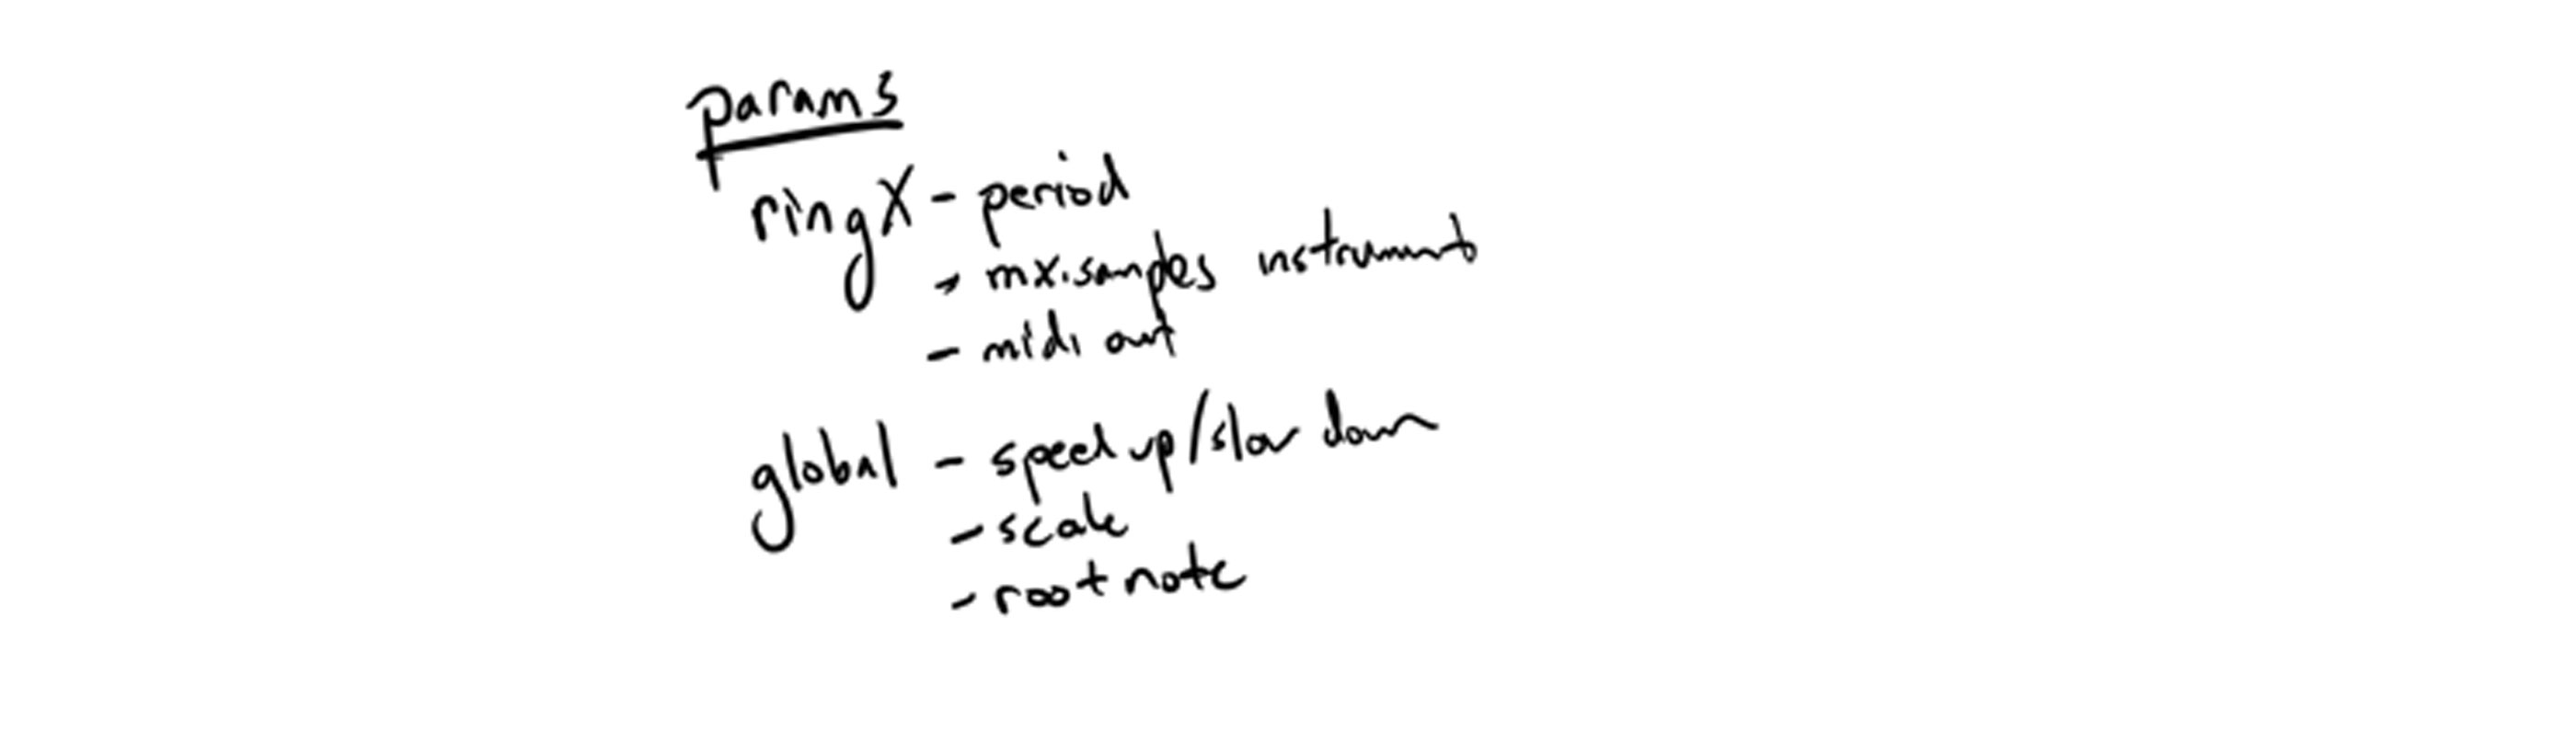 params
ringX - period
- mx.samples instrument
- midi out
global - speed up/slow down
- scale
- root note